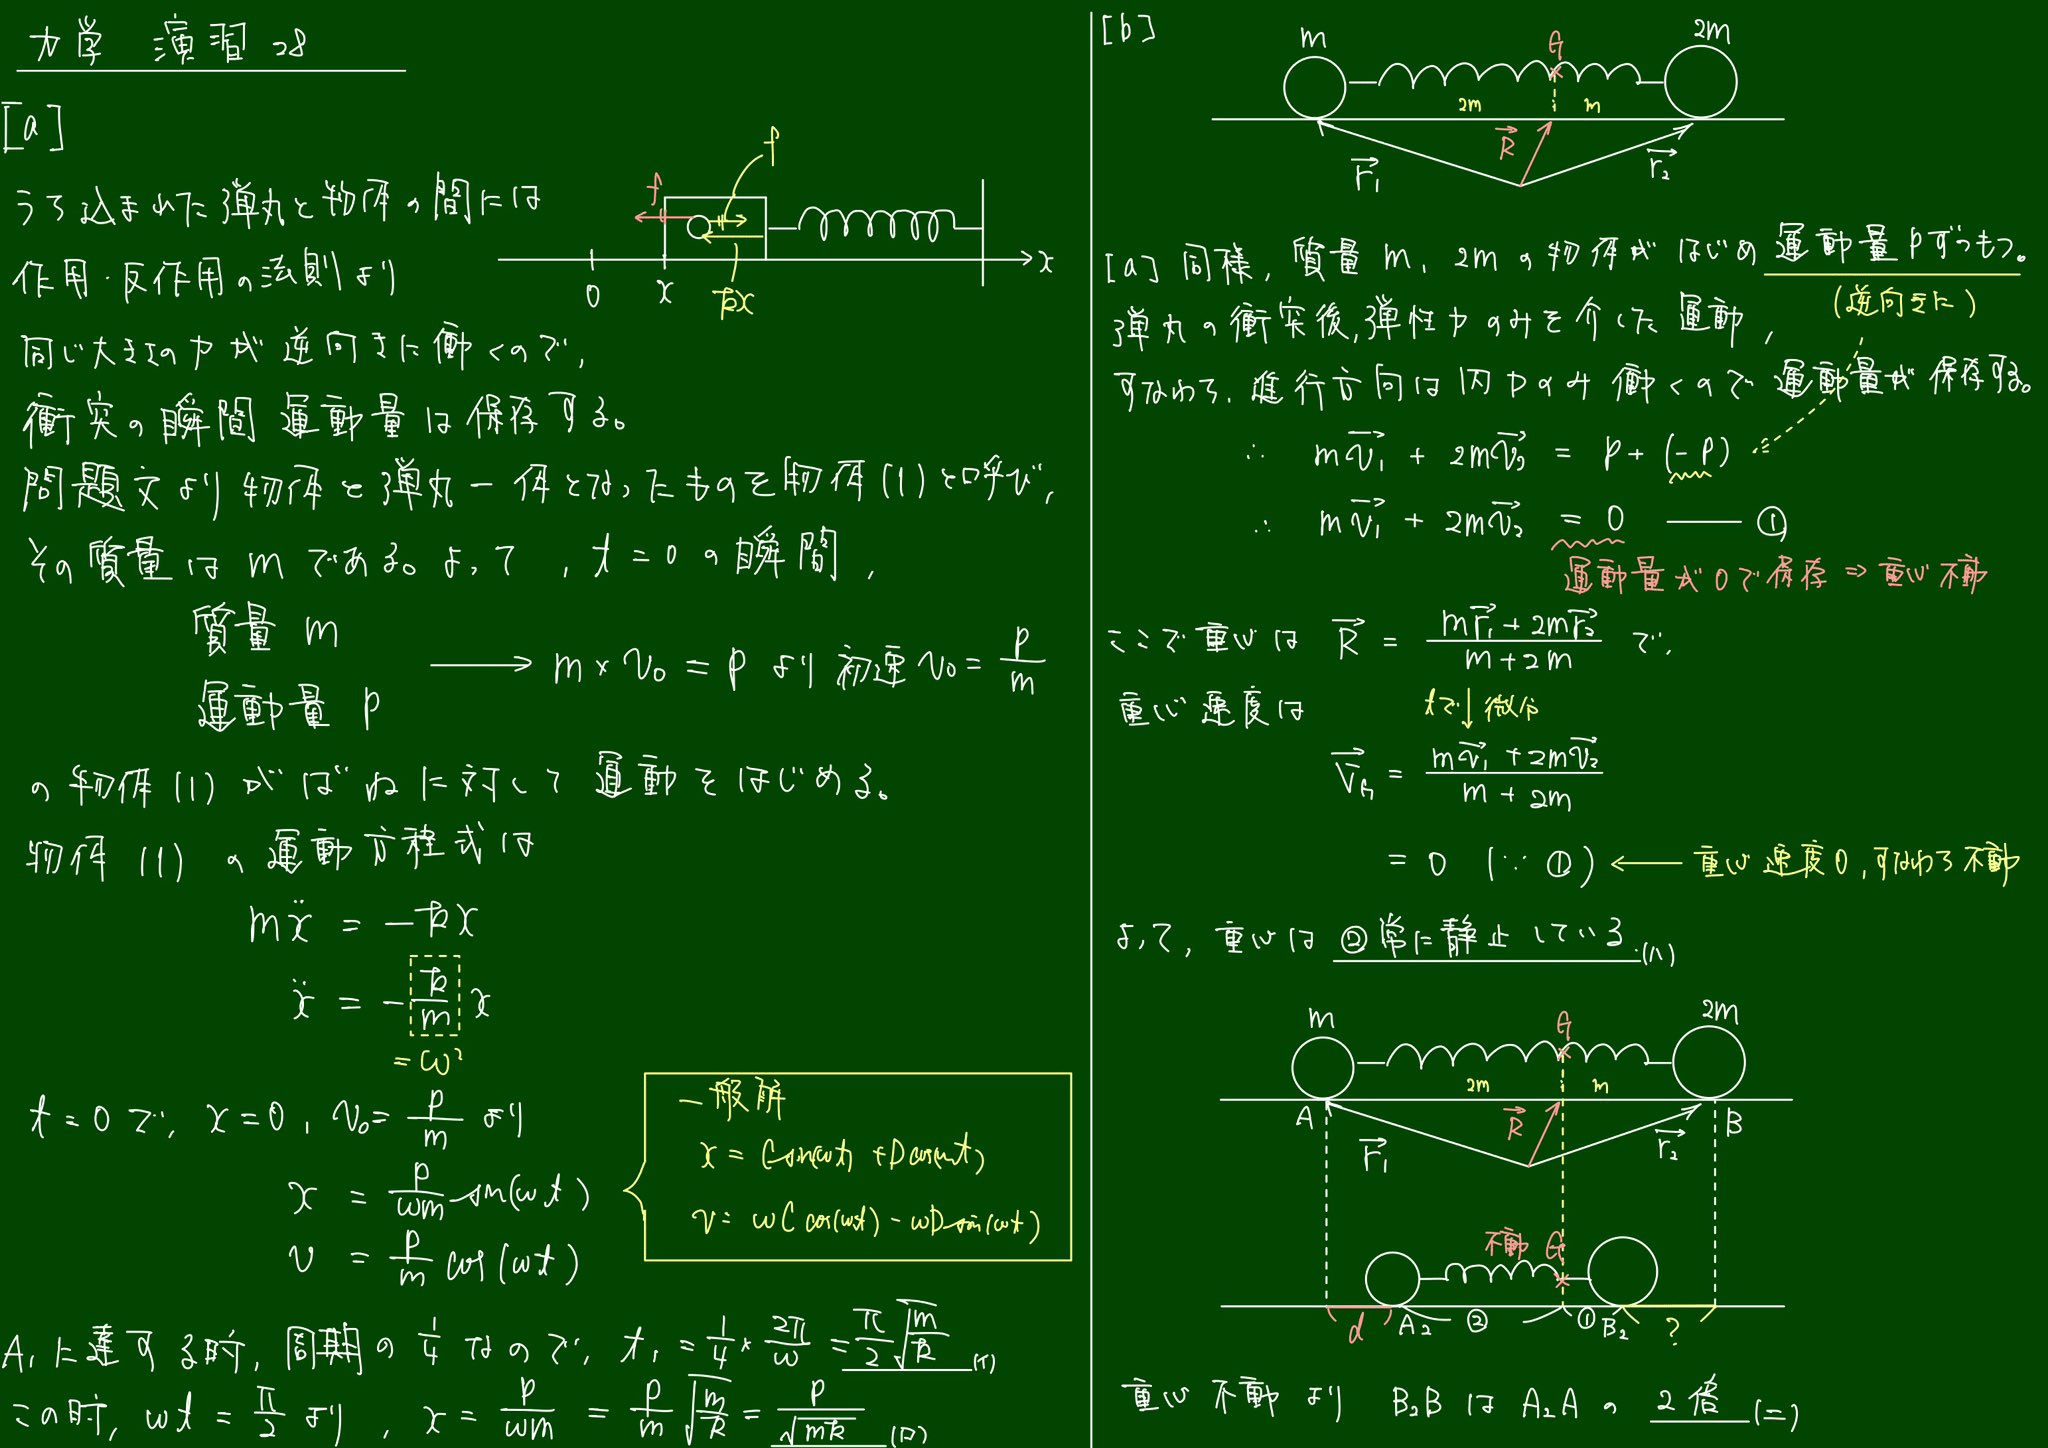 力学 演習 28
[a]
うち込まれた弾丸と物体の間には
作用・反作用の法則より
同じ大きさの力が逆向きに働くので,
衝突の瞬間 運動量は保存する。
問題文より物体と弾丸一体となったものを物体(1)と呼び,
その質量は m である。よって, t = 0 の瞬間,
質量 m
運動量 p
⟶ m × v₀ = p より 初速 v₀ = p/m
の物体(1)がばねに対して運動をはじめる。
物体(1)の運動方程式は
mẍ = −kx
ẍ = −(k/m) x
= ω²
t = 0 で, x = 0, v₀ = p/m より
x = p/(ωm) sin(ωt)
v = p/m cos(ωt)
一般解
x = C sin(ωt) + D cos(ωt)
v = ωC cos(ωt) − ωD sin(ωt)
A₁ に達する時, 周期の 1/4 なので, t₁ = 1/4 × 2π/ω = π/2 √(m/k) (イ)
この時, ωt = π/2 より, x = p/(ωm) = p/m √(m/k) = p/√(mk) (ロ)
f
f
kx
0
x
x
[b]
m
G
2m
2m
m
R⃗
r⃗₁
r⃗₂
[a]同様, 質量 m, 2m の物体がはじめ 運動量 p ずつもつ。
(逆向きに)
弾丸の衝突後, 弾性力のみを介した運動,
すなわち, 進行方向は内力のみ働くので 運動量が保存する。
∴ mv⃗₁ + 2mv⃗₂ = p + (−p)
∴ mv⃗₁ + 2mv⃗₂ = 0 ── ①
運動量が0で保存 ⇒ 重心不動
ここで重心は R⃗ = (mr⃗₁ + 2mr⃗₂)/(m + 2m) で,
tで↓微分
重心速度は
V⃗G = (mv⃗₁ + 2mv⃗₂)/(m + 2m)
= 0 (∵ ①) ← 重心速度0, すなわち不動
よって, 重心は ② 常に静止している.(ハ)
m
G
2m
2m
m
A
R⃗
B
r⃗₁
r⃗₂
不動 G
d
A₂
②
①
B₂
?
重心不動より B₂B は A₂A の 2倍 (ニ)